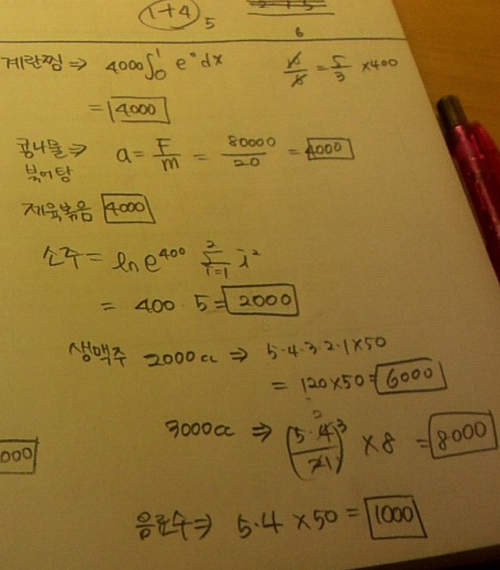 1+4 5
6
계란찜 ⇒ 4000∫₀¹ e⁰dx 6/6 = 5/3 ×400
= 4000
콩나물 ⇒ a = F/m = 80000/20 = 4000
북어탕
제육볶음 4000
소주 = ln e⁴⁰⁰ Σ(i=1, 2) i²
= 400 · 5 = 2000
생맥주 2000cc ⇒ 5·4·3·2·1×50
= 120×50 = 6000
3000cc ⇒ (5·4/21)³ × 8 = 8000
2
000
음료수 ⇒ 5·4 ×50 = 1000